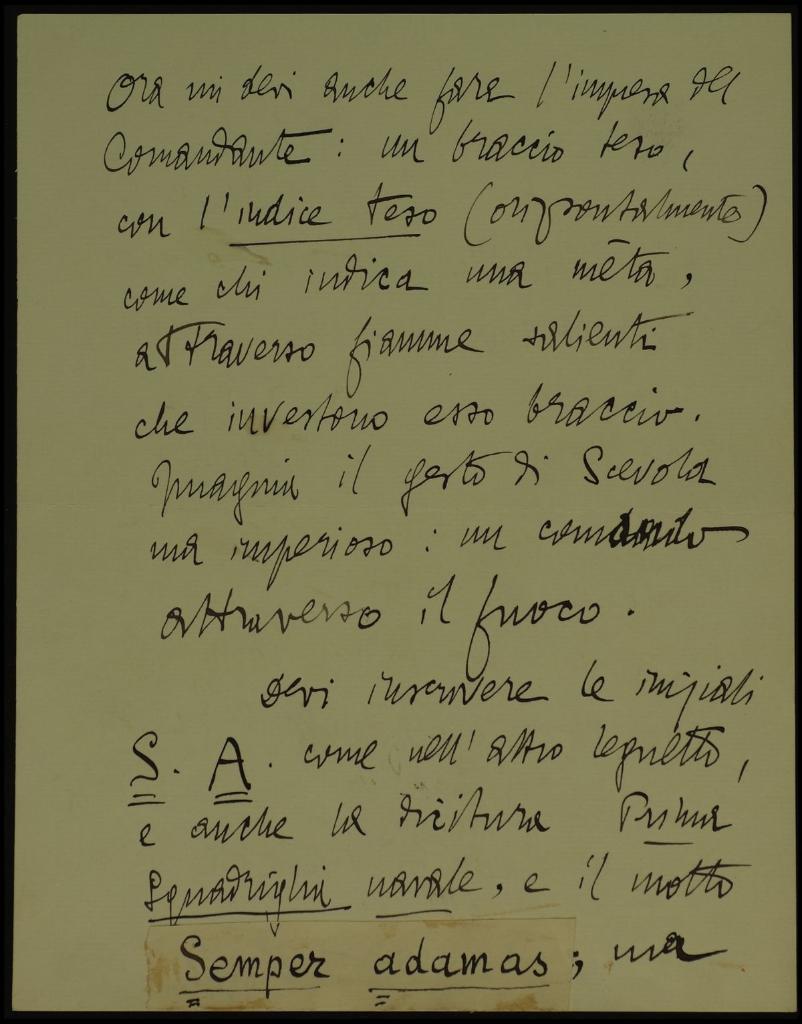 Ora mi devi anche fare l'impresa del
Comandante: un braccio teso,
con l'indice teso (orizzontalmente)
come chi indica una mēta,
attraverso fiamme salienti
che investono esso braccio.
Imagina il gesto di Scevola
ma imperioso: un comando
attraverso il fuoco.
Devi inscrivere le iniziali
S. A. come nell'altro legnetto,
e anche la dicitura Prima
Squadriglia navale, e il motto
Semper adamas; ma